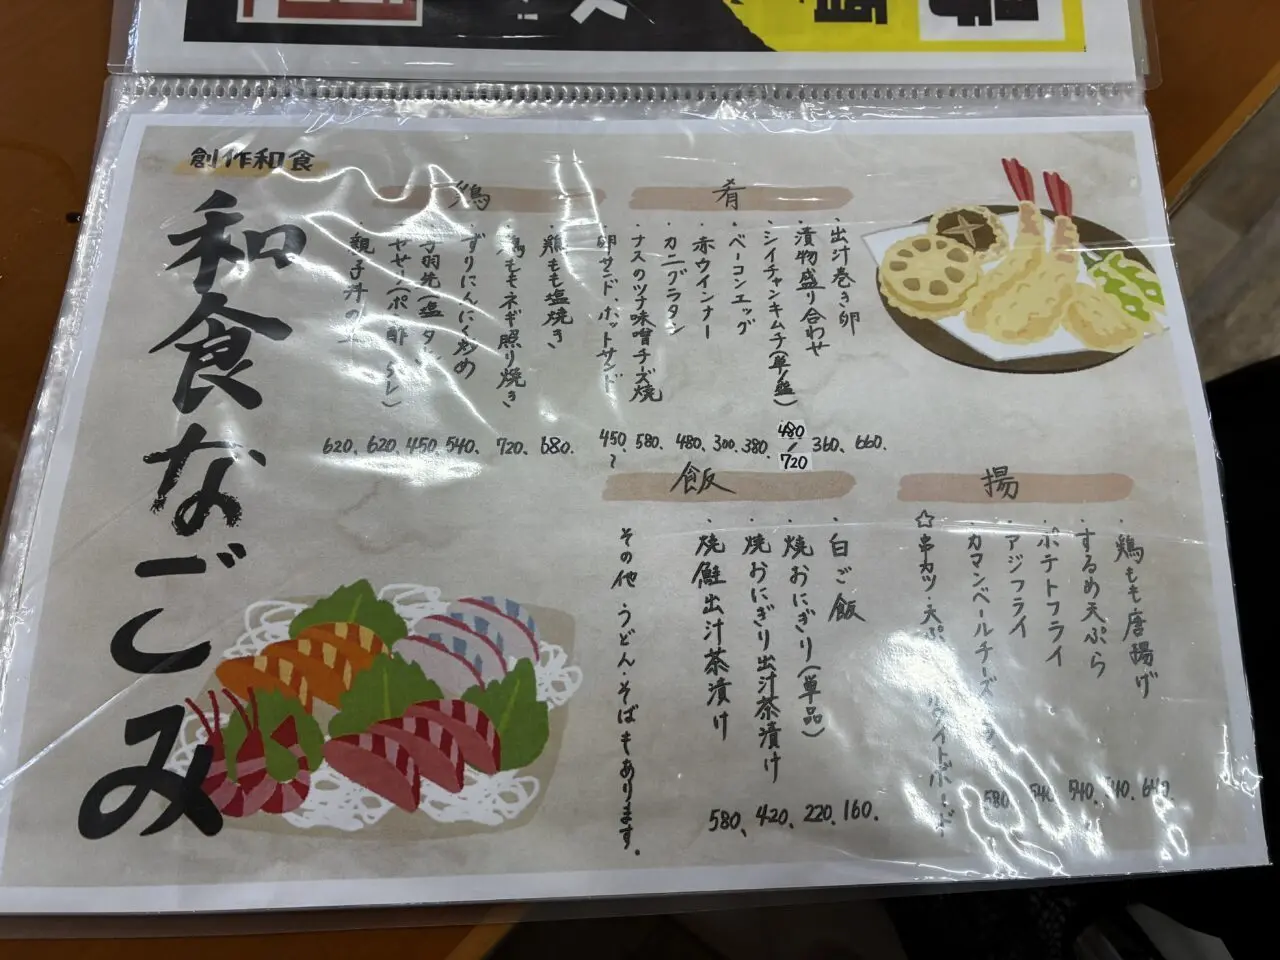 創作和食
和食なごみ
肴
・出汁巻き卵 660.
・漬物盛り合わせ 360、
・シイチャンキムチ(単/盛) 480/720
・ベーコンエッグ 380、
・赤ウインナー 300、
・カニグラタン 480、
・ナスのツナ味噌チーズ焼 580、
・卵サンド、ホットサンド 450、~
鶏
・鶏もも塩焼き 680.
・鶏ももネギ照り焼き 720、
・ずりにんにく炒め 540、
手羽先(塩 タレ) 450、
ヤゲン(ポン酢 タレ) 620、
・親子丼の 620、
揚
・鶏もも唐揚げ 640、
・するめ天ぷら 540、
・ポテトフライ 540、
・アジフライ 540
・カマンベールチーズフライ 580
☆串カツ・天ぷら ホワイトボード
飯
・白ご飯 160.
・焼おにぎり(単品) 220、
・焼おにぎり出汁茶漬け 420、
・焼鮭出汁茶漬け 580、
その他 うどん・そばもあります。